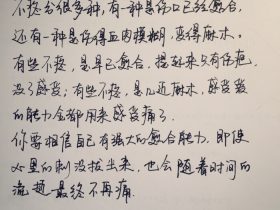 不疼也很多种，有一种是伤口已经愈合，
还有一种是伤得血肉模糊，变得麻木。
有些不疼，是早已愈合，提起来只有伤疤，
没了感觉；有些不疼，是几近麻木，感觉
的能力全都用来感觉痛了。
你要相信自己有强大的愈合能力，即使
心里的刺没拔出来，也会随着时间的
流逝最终不再痛